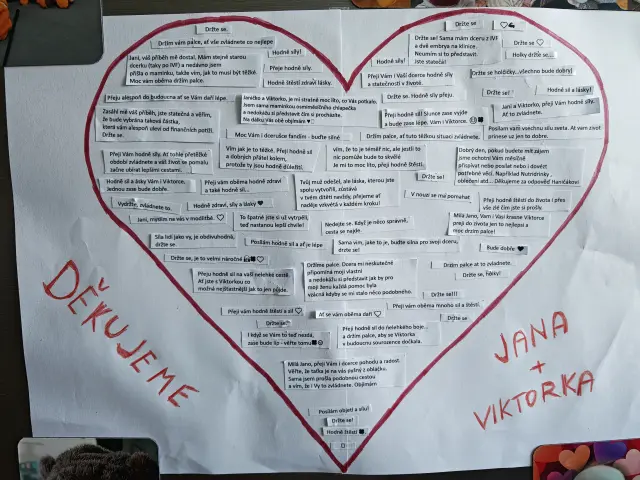 Držte se.
Držím vám palce, ať vše zvládnete co nejlépe
Hodně síly!
Jani, váš příběh mě dostal. Mám stejně starou
dcerku (taky po IVF) a nedávno jsem
přišla o maminku, takže vím, jak to musí být těžké.
Moc vám oběma držím palce.
Přeje hodně síly.
Hodně štěstí zdraví lásky.
Přeju alespoň do budoucna ať se Vám daří lépe.
Zasáhl mě váš příběh, jste statečná a věřím,
že bude vybrána taková částka,
která vám alespoň uleví od finančních potíží.
Držte se.
Janičko a Viktorko, je mi strašně moc líto, co Vás potkalo.
Jsem sama maminkou osmiměsíčního chlapečka
a nedokážu si představit čím si procházíte.
Na dálku vás obě objímám ♥
Moc Vám i dcerušce fandím - buďte silné
Držte se
♡
Držte se! Sama mám dceru z IVF
a dvě embrya na klinice.
Neumím si to představit.
Jste statečná!
Držte se ♡
Holky držte se...
Hodně síly!
Přeji Vám i Vaší dcerce hodně síly
a statečnosti v životě.
Držte se holčičky...všechno bude dobrý!
Držte se. Hodně síly přeju.
Držte se.
Hodně síl a lásky!
Přeji hodně síl! Slunce zase vyjde
a bude zase lépe, Vám i Viktorce.
Jani a Viktorko, přeji Vám hodně síly.
Ať to zvládnete.
Držím palce, ať tuto těžkou situaci zvládnete.
Posílám vam vsechnu sílu sveta. At vam zivot
prinese uz jen to dobre.
Přeji Vám hodně síly. Ať tohle přetěžké
období zvládnete a váš život se pomalu
začne obírat lepšími cestami.
Vím jak je to těžké. Přeji hodně síl
a dobrých přátel kolem,
protože ty jsou hodně důležití.
vím, že to je téměř nic, ale jestli to
nic pomůže bude to skvělé
Je mi to moc líto, přeji hodně štěstí.
Dobrý den, pokud budete mít zájem
jsme ochotni Vám měsíčně
přispívat nebo posílat nebo i dovézt
potřebné věci. Například Nutridrinky ,
oblečení atd... Děkujeme za odpověď Haničákovi
Hodně síl a lásky Vám i Viktorce.
Jednou zase bude dobře.
Přeji vám oběma hodně zdraví
a také hodně sil...
Tvůj muž odešel, ale láska, kterou jste
spolu vytvořili, zůstává
v tvém dítěti navždy, přejeme ať
naděje vykvétá v každém kroku!
Držte se!
V nouzi se má pomáhat
Vydržte, zvládnete to.
Hodně zdraví, síly a lásky ♥
Přeji hodně štěstí do života i přes
vše zlé čím jste si prošly
Jani, myslím na vás v modlitbě. ♡
To špatné jste si už vytrpěli,
teď nastanou lepší chvíle!
Nedejte se. Když je něco správné,
cesta se najde.
Milá Jano, Vam i Vasi krasne Viktorce
preji do zivota jen to nejlepsi a
moc drzim palce!
Síla lidí jako vy, je obdivuhodná,
držte se.
Posílám hodně síl a ať je lépe
Sama vím, jaké to je, buďte silná pro svoji dceru,
drzte se!
Bude dobře ♥
Držte se, je to velmi náročné
Přeju hodně síl na vaší nelehké cestě
Ať jste s Viktorkou co
možná nejšťastnější jak to jen půjde.
Držíme palce. Dcera mi neskutečně
připomíná moji vlastní
a nedokážu si představit jak by pro
moji ženu každá pomoc byla
vzácná kdyby se mi stalo něco podobného.
Držím palce at to zvladnete.
Držte se, holky!
Držte se!!!
Přeji vám hodně štěstí a síl ♡
Ať se vám oběma daří ♡
Přeji vám oběma mnoho sil a štěstí.
Držte se.
Držte se
I když se Vám to teď nezdá,
zase bude líp - věřte tomu
Přeji hodně síl do nelehkého boje...
a držím palce, aby se Viktorka
v budoucnu sourozence dočkala.
Milá Jano, přeji Vám i dcerce pohodu a radost.
Věřte, že taťka je na vás pyšný z obláčku.
Sama jsem prošla podobnou cestou
a vím, že i Vy to zvládnete. Objímám
Posílám objetí a sílu!
Držte se!
Hodně štěstí
DĚKUJEME
JANA
+
VIKTORKA